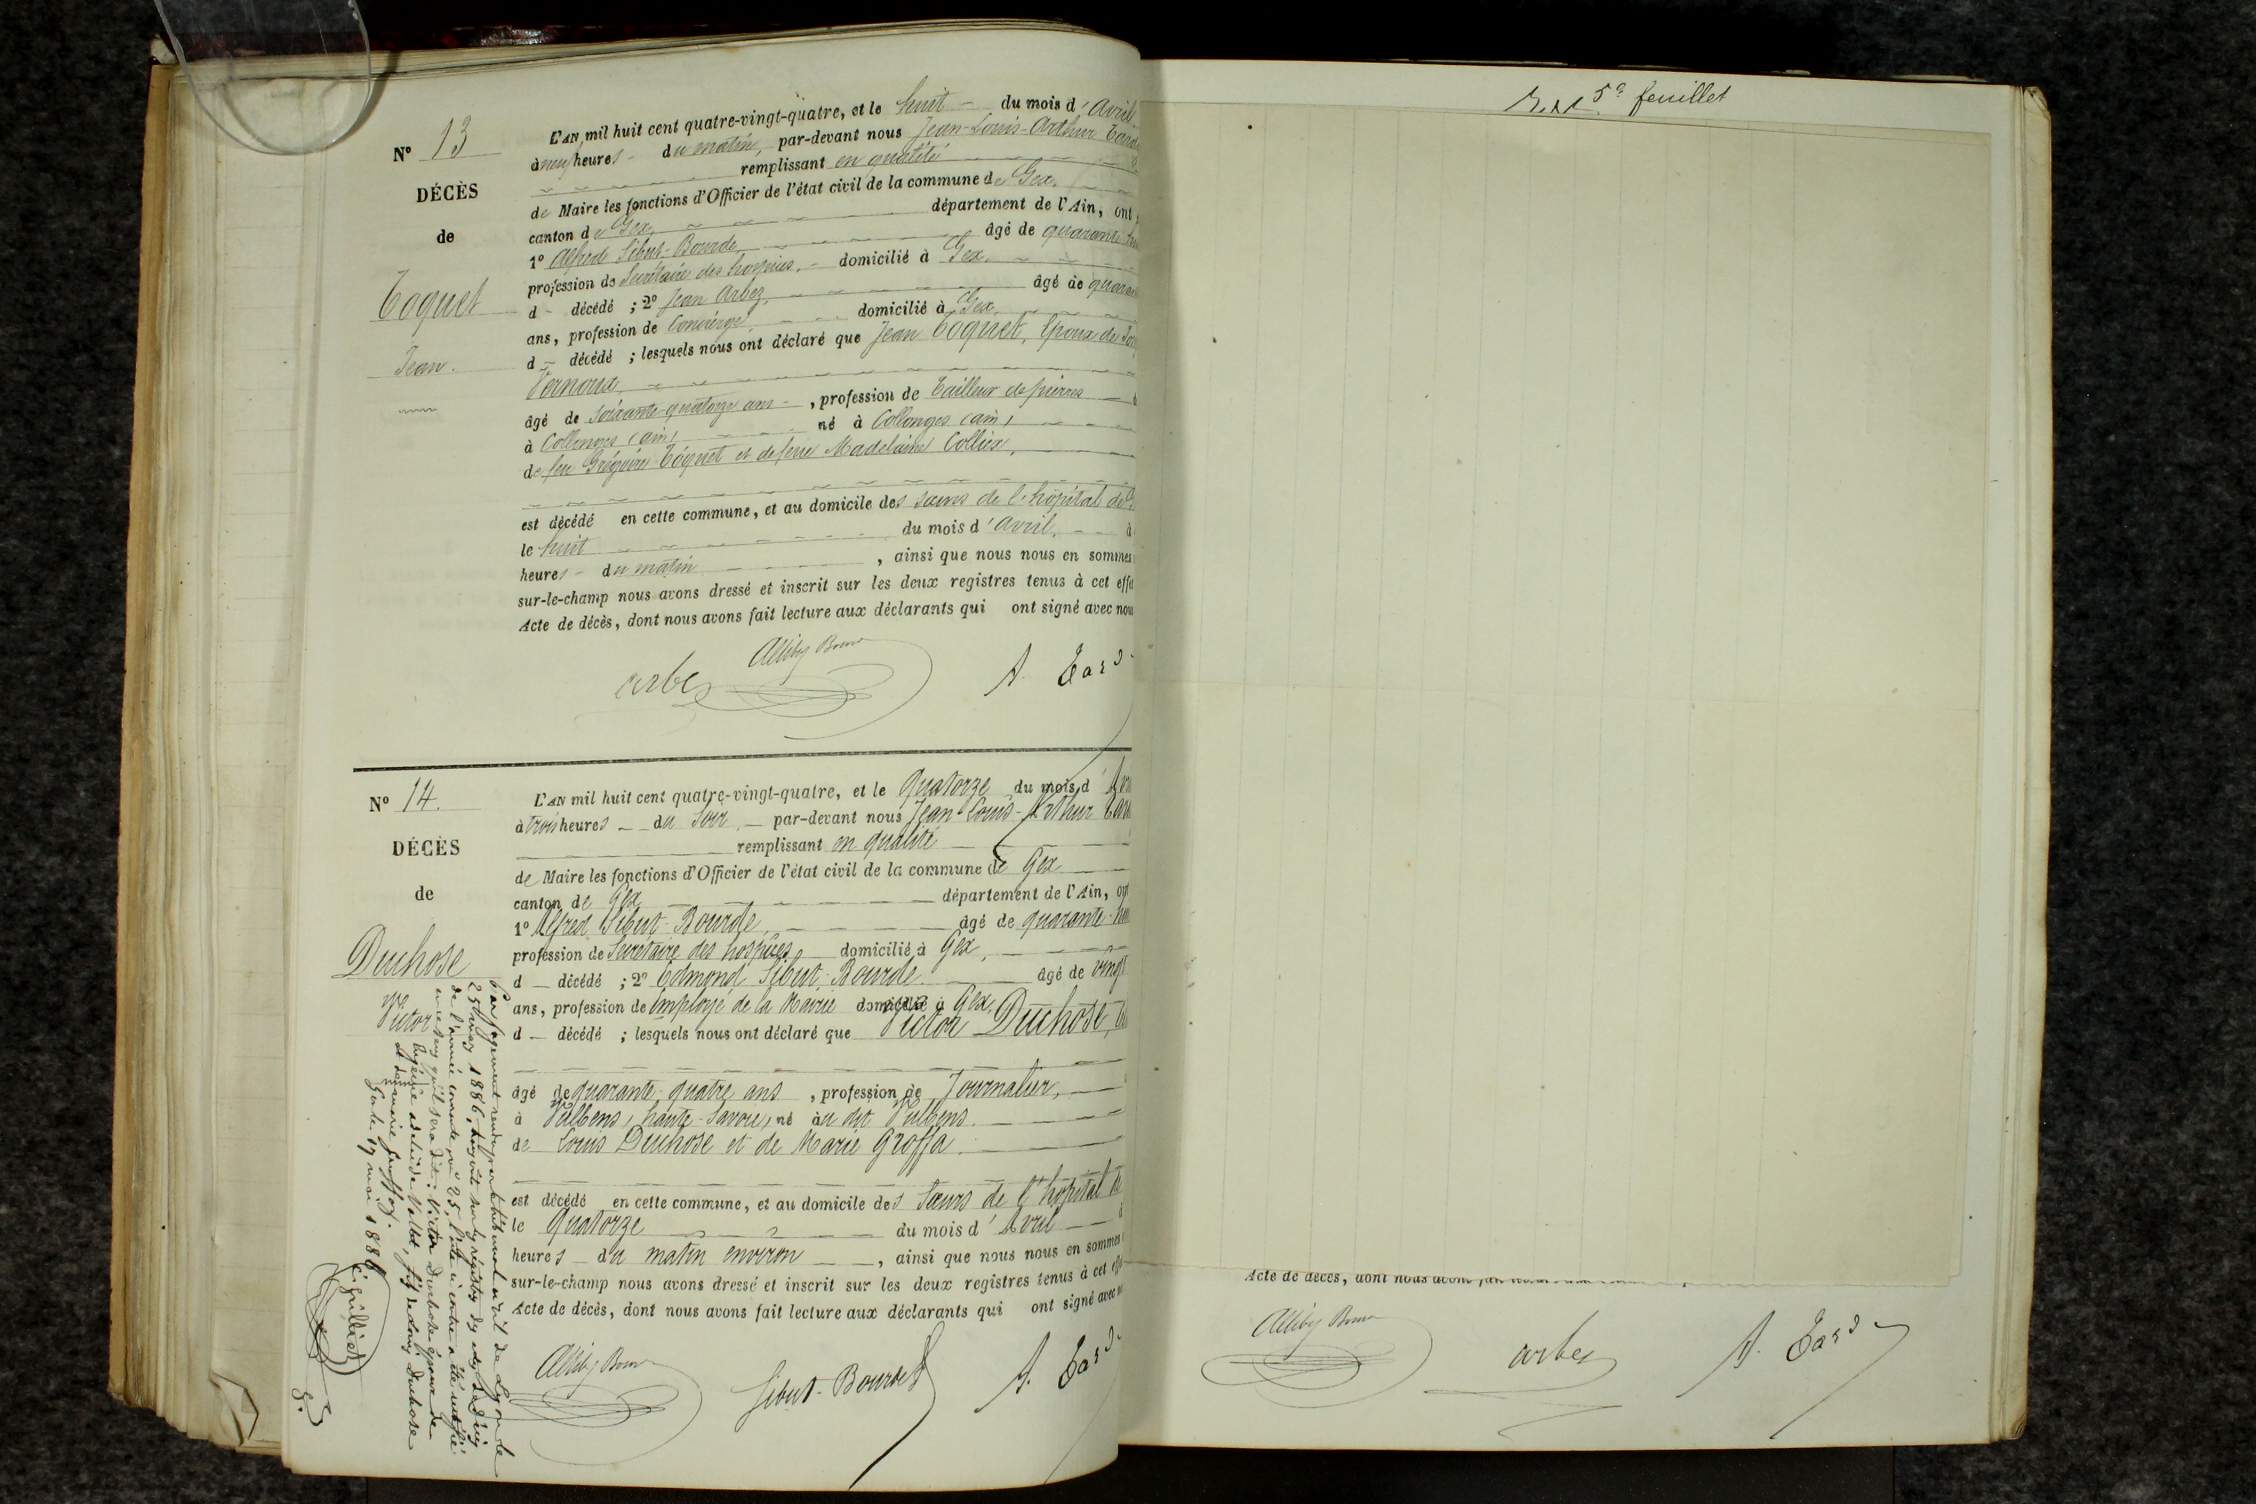 N° 13
DÉCÈS
de
Toquet
Jean.
L'AN mil huit cent quatre-vingt-quatre, et le huit du mois d'avril
à neuf heures du matin, par-devant nous Jean-Louis-Arthur
remplissant en qualité
de Maire les fonctions d'Officier de l'état civil de la commune de Gex.
canton de Gex, département de l'Ain, ont
1° Alfred Sibut-Bourde âgé de quarante
profession de Secrétaire des hospices, domicilié à Gex.
d décédé ; 2° Jean Arbez, âgé de
ans, profession de Concierge, domicilié à Gex,
d décédé ; lesquels nous ont déclaré que Jean Toquet, Époux de
Vernoux,
âgé de soixante-quatorze ans, profession de tailleur de pierres
à Collonges (ain) né à Collonges (ain)
de feu Grégoire Toquet et de feue Madelaine Collier,
est décédé en cette commune, et au domicile des sœurs de l'hôpital de
le huit du mois d'avril, à
heures du matin , ainsi que nous nous en sommes
sur-le-champ nous avons dressé et inscrit sur les deux registres tenus à cet effet
Acte de décès, dont nous avons fait lecture aux déclarants qui ont signé avec nous
arbez
A.
N° 14.
DÉCÈS
de
Duchose
Victor
L'AN mil huit cent quatre-vingt-quatre, et le Quatorze du mois d'
à trois heures du soir, par-devant nous Jean-Louis-Arthur
remplissant en qualité
de Maire les fonctions d'Officier de l'état civil de la commune de Gex
canton de Gex département de l'Ain,
1° Alfred Sibut-Bourde, âgé de quarante
profession de Secrétaire des hospices domicilié à Gex,
d décédé ; 2° Edmond Sibut-Bourde âgé de vingt
ans, profession de Employé de la Mairie domicilié à Gex,
d décédé ; lesquels nous ont déclaré que Victor Duchose,
âgé de quarante-quatre ans , profession de Journalier,
à Vulbens, haute-Savoie, né au dit Vulbens.
de Louis Duchose et de Marie Groffa.
est décédé en cette commune, et au domicile des sœurs de l'hôpital de
le Quatorze du mois d'Avril
heures du matin environ , ainsi que nous nous en sommes
sur-le-champ nous avons dressé et inscrit sur les deux registres tenus à cet
Acte de décès, dont nous avons fait lecture aux déclarants qui ont signé avec
Sibut-Bourde
A.
Par jugement rendu par le tribunal civil de Lyon le
25 mars 1886,
de l'année courante n° 25, l'acte ci-contre a été rectifié
en ce sens qu'il sera dit: Victor Duchose époux de
adelaïde Vallet, fils de Louis Duchose
et de marie
Gex le 19 mai 1886
5e feuillet
Acte de décès, dont nous avons
arbez
A.